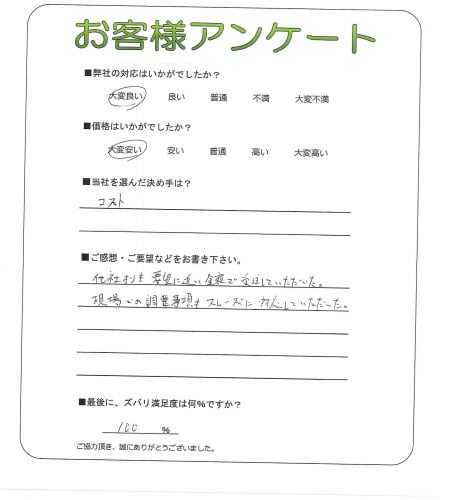 お客様アンケート
■弊社の対応はいかがでしたか?
大変良い 良い 普通 不満 大変不満
■価格はいかがでしたか?
大変安い 安い 普通 高い 大変高い
■当社を選んだ決め手は?
コスト
■ご感想・ご要望などをお書き下さい。
他社よりも要望に近い金額で受注していただいた。
現場での調整事項もスムーズに対応していただいた。
■最後に、ズバリ満足度は何%ですか?
100 %
ご協力頂き、誠にありがとうございました。